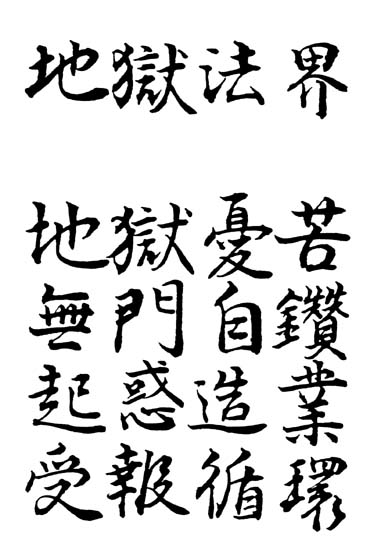 地獄法界
地獄憂苦
無門自鑽
起惑造業
受報循環